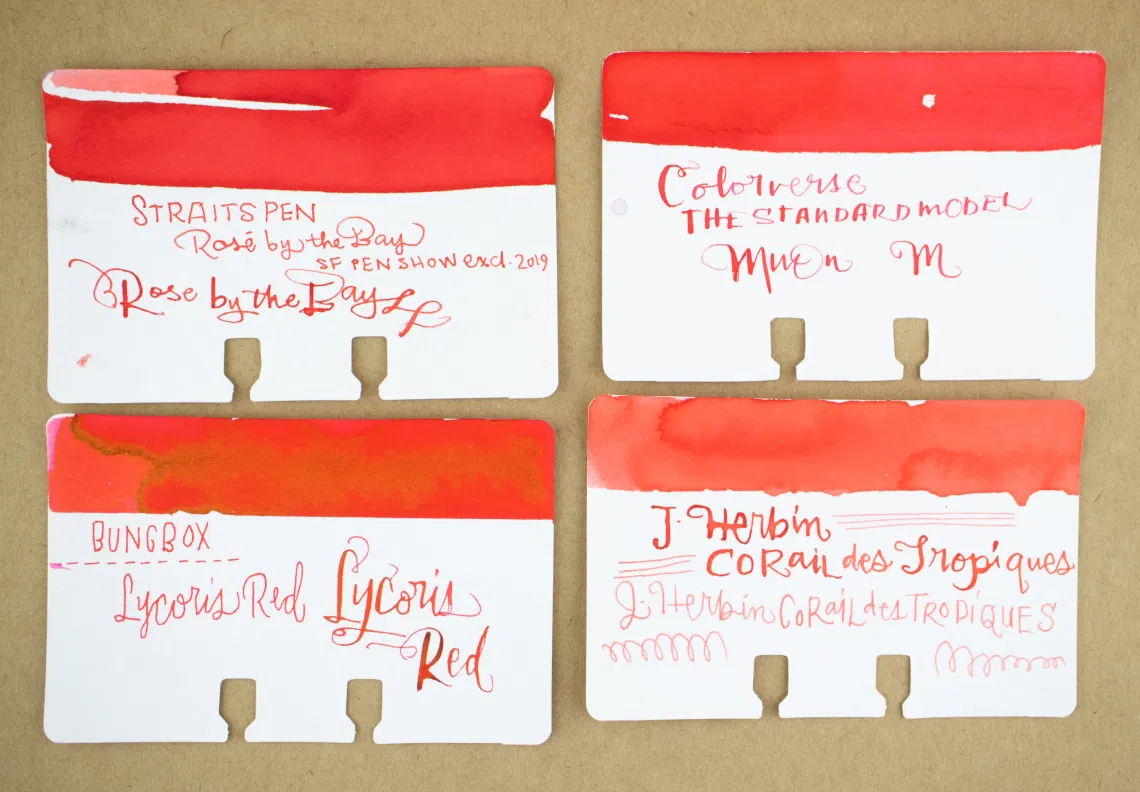 STRAITS PEN
Rosé by the Bay
SF PEN SHOW excl. 2019
Rose by the Bay
Colorverse
THE STANDARD MODEL
Muon M
BUNGBOX
Lycoris Red
Lycoris
Red
J. Herbin
CORAil des Tropiques
J. Herbin CORAil des TROPiQUES